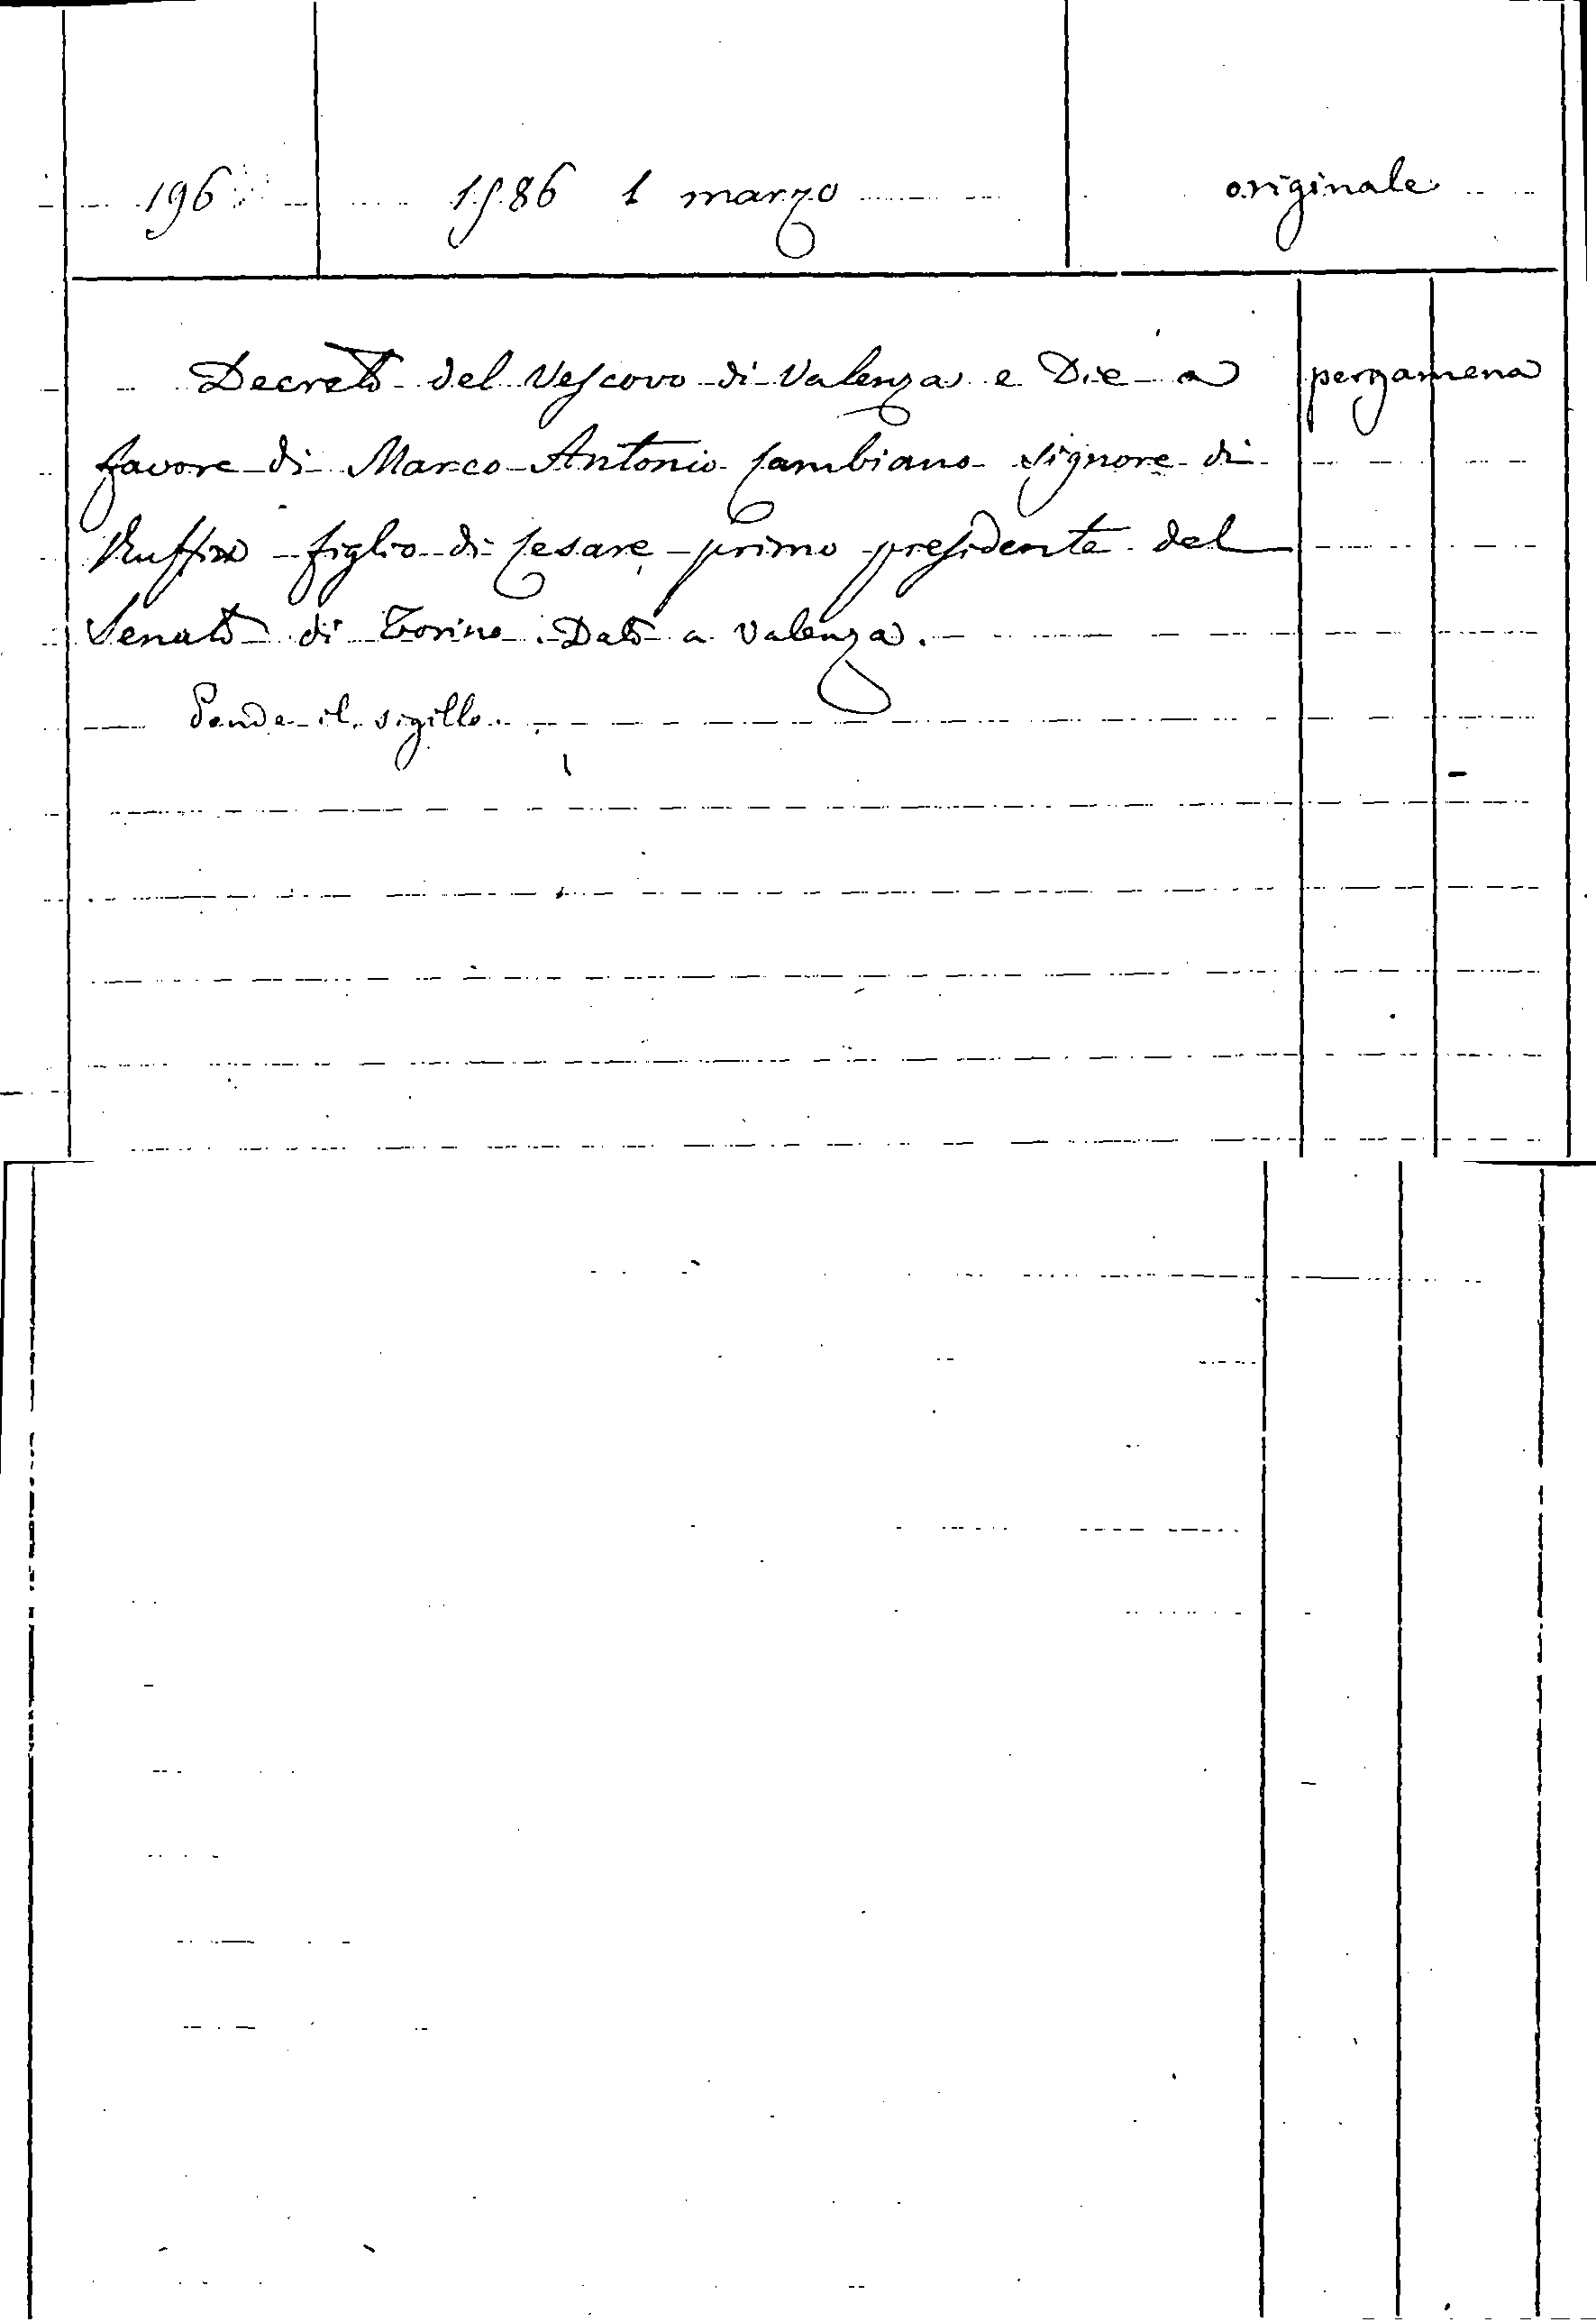 196 1586 1 marzo originale
Decreto del Vescovo di Valenza e Die a pergamena
favore di Marco Antonio Cambiano signore di
Ruffia figlio di Cesare primo presidente del
Senato di Torino. Dato a Valenza.
Pende il sigillo.